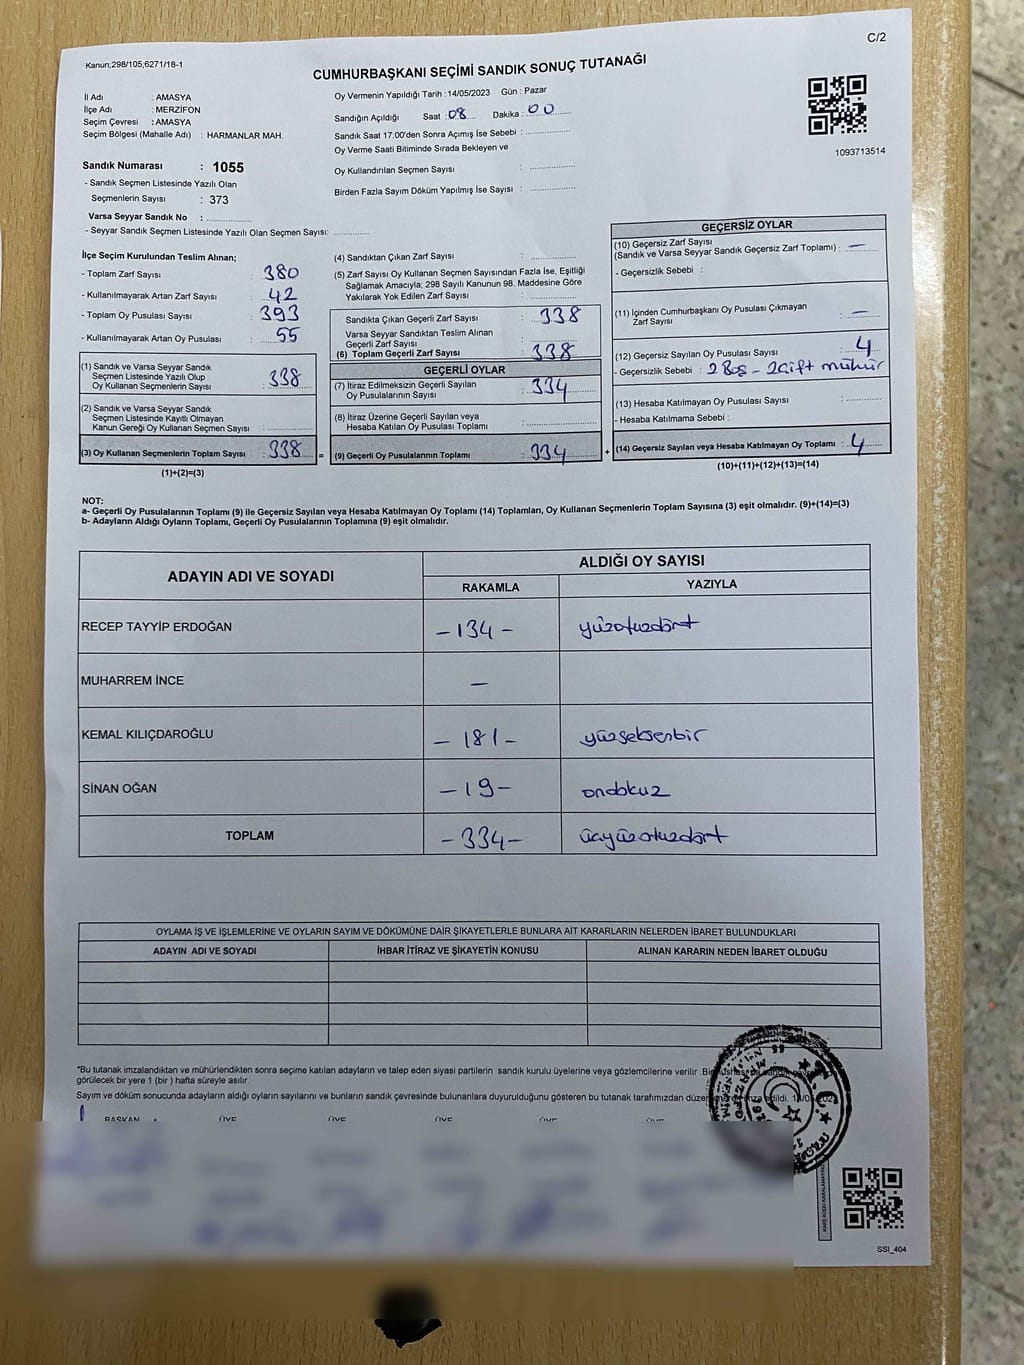 C/2
Kanun;298/105,6271/18-1
CUMHURBAŞKANI SEÇİMİ SANDIK SONUÇ TUTANAĞI
İl Adı : AMASYA
İlçe Adı : MERZİFON
Seçim Çevresi : AMASYA
Seçim Bölgesi (Mahalle Adı) : HARMANLAR MAH.
Sandık Numarası : 1055
- Sandık Seçmen Listesinde Yazılı Olan
Seçmenlerin Sayısı : 373
Varsa Seyyar Sandık No : ..............
- Seyyar Sandık Seçmen Listesinde Yazılı Olan Seçmen Sayısı: ............
Oy Vermenin Yapıldığı Tarih : 14/05/2023 Gün : Pazar
Sandığın Açıldığı Saat : 08 Dakika : 00
Sandık Saat 17:00'den Sonra Açımış İse Sebebi : ..............
Oy Verme Saati Bitiminde Sırada Bekleyen ve
Oy Kullandırılan Seçmen Sayısı : ..............
Birden Fazla Sayım Döküm Yapılmış İse Sayısı : ..............
1093713514
İlçe Seçim Kurulundan Teslim Alınan;
- Toplam Zarf Sayısı : 380
- Kullanılmayarak Artan Zarf Sayısı : 42
- Toplam Oy Pusulası Sayısı : 393
- Kullanılmayarak Artan Oy Pusulası : 55
(1) Sandık ve Varsa Seyyar Sandık
Seçmen Listesinde Yazılı Olup
Oy Kullanan Seçmenlerin Sayısı : 338
(2) Sandık ve Varsa Seyyar Sandık
Seçmen Listesinde Kayıtlı Olmayan
Kanun Gereği Oy Kullanan Seçmen Sayısı : ..............
(3) Oy Kullanan Seçmenlerin Toplam Sayısı : 338 =
(1)+(2)=(3)
(4) Sandıktan Çıkan Zarf Sayısı : ..............
(5) Zarf Sayısı Oy Kullanan Seçmen Sayısından Fazla İse, Eşitliği
Sağlamak Amacıyla; 298 Sayılı Kanunun 98. Maddesine Göre
Yakılarak Yok Edilen Zarf Sayısı : ..............
Sandıkta Çıkan Geçerli Zarf Sayısı : 338
Varsa Seyyar Sandıktan Teslim Alınan
Geçerli Zarf Sayısı : ..............
(6) Toplam Geçerli Zarf Sayısı : 338
GEÇERLİ OYLAR
(7) İtiraz Edilmeksizin Geçerli Sayılan
Oy Pusulalarının Sayısı : 334
(8) İtiraz Üzerine Geçerli Sayılan veya
Hesaba Katılan Oy Pusulası Toplamı : ..............
(9) Geçerli Oy Pusulalarının Toplamı : 334 +
GEÇERSİZ OYLAR
(10) Geçersiz Zarf Sayısı
(Sandık ve Varsa Seyyar Sandık Geçersiz Zarf Toplamı) : —
- Geçersizlik Sebebi :
(11) İçinden Cumhurbaşkanı Oy Pusulası Çıkmayan
Zarf Sayısı : —
(12) Geçersiz Sayılan Oy Pusulası Sayısı : 4
- Geçersizlik Sebebi : 2 Boş - 2 çift mühür
(13) Hesaba Katılmayan Oy Pusulası Sayısı : ..............
- Hesaba Katılmama Sebebi :
(14) Geçersiz Sayılan veya Hesaba Katılmayan Oy Toplamı : 4
(10)+(11)+(12)+(13)=(14)
NOT:
a- Geçerli Oy Pusulalarının Toplamı (9) ile Geçersiz Sayılan veya Hesaba Katılmayan Oy Toplamı (14) Toplamları, Oy Kullanan Seçmenlerin Toplam Sayısına (3) eşit olmalıdır. (9)+(14)=(3)
b- Adayların Aldığı Oyların Toplamı, Geçerli Oy Pusulalarının Toplamına (9) eşit olmalıdır.
ADAYIN ADI VE SOYADI
ALDIĞI OY SAYISI
RAKAMLA YAZIYLA
RECEP TAYYİP ERDOĞAN -134- yüzotuzdört
MUHARREM İNCE —
KEMAL KILIÇDAROĞLU -181- yüzseksenbir
SİNAN OĞAN -19- ondokuz
TOPLAM -334- üçyüzotuzdört
OYLAMA İŞ VE İŞLEMLERİNE VE OYLARIN SAYIM VE DÖKÜMÜNE DAİR ŞİKAYETLERLE BUNLARA AİT KARARLARIN NELERDEN İBARET BULUNDUKLARI
ADAYIN ADI VE SOYADI İHBAR İTİRAZ VE ŞİKAYETİN KONUSU ALINAN KARARIN NEDEN İBARET OLDUĞU
*Bu tutanak imzalandıktan ve mühürlendikten sonra seçime katılan adayların ve talep eden siyasi partilerin sandık kurulu üyelerine veya gözlemcilerine verilir .Bir
görülecek bir yere 1 (bir ) hafta süreyle asılır.
Sayım ve döküm sonucunda adayların aldığı oyların sayılarını ve bunların sandık çevresinde bulunanlara duyurulduğunu gösteren bu tutanak tarafımızdan
BAŞKAN ÜYE ÜYE ÜYE ÜYE ÜYE
SSI_404